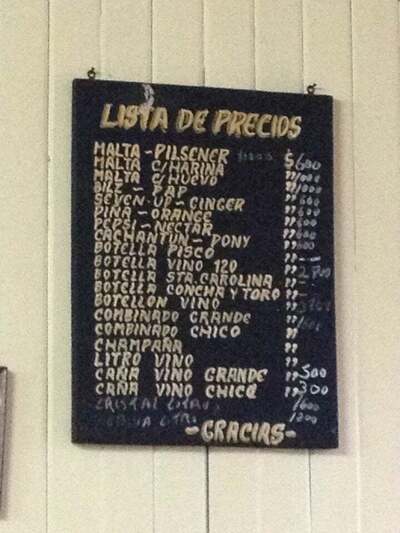 LISTA DE PRECIOS
MALTA - PILSENER $600
MALTA C/HARINA "1000
MALTA C/HUEVO "1000
BILZ - PAP "600
SEVEN-UP - GINGER "600
PIÑA - ORANGE "600
PEPSI - NECTAR "600
CACHANTUN - PONY "600
BOTELLA PISCO " -
BOTELLA VINO 120 "2700
BOTELLA STA. CAROLINA " -
BOTELLA CONCHA Y TORO " -
BOTELLON VINO "
COMBINADO GRANDE "
COMBINADO CHICO "
CHAMPAÑA "
LITRO VINO "
CAÑA VINO GRANDE "500
CAÑA VINO CHICO "300
CRISTAL LITRO 1600
LITRO 1200
-GRACIAS-